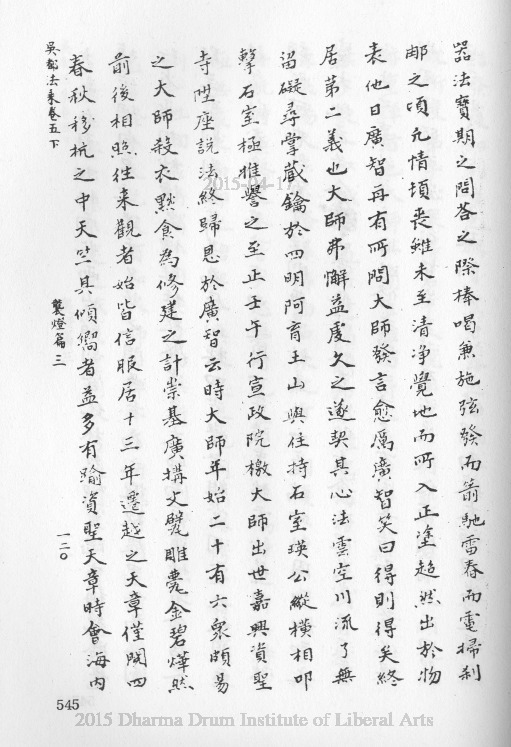 器法寶期之問答之際棒喝兼施弦發而箭馳雷舂而電掃剎
那之頃凡情頓喪雖未至清淨覺地而所入正塗超然出於物
表他日廣智再有所問大師發言愈厲廣智笑曰得則得矣終
居第二義也大師弗懈益虔久之遂契其心法雲空川流了無
留礙尋掌藏鑰於四明阿育王山與住持石室瑛公縱橫相叩
擊石室極推譽之至正壬午行宣政院檄大師出世嘉興資聖
寺陞座說法終歸恩於廣智云時大師年始二十有六眾頗易
之大師殺衣黜食為修建之計崇基廣構文甍雕甍金碧煒然
前後相照往來觀者始皆信服居十三年遷越之天章僅閱四
春秋移杭之中天竺其傾嚮者益多有踰資聖天章時會海內
吳都法乘卷五下
襲燈篇三
一二〇
545
2015-04-17
2015 Dharma Drum Institute of Liberal Arts